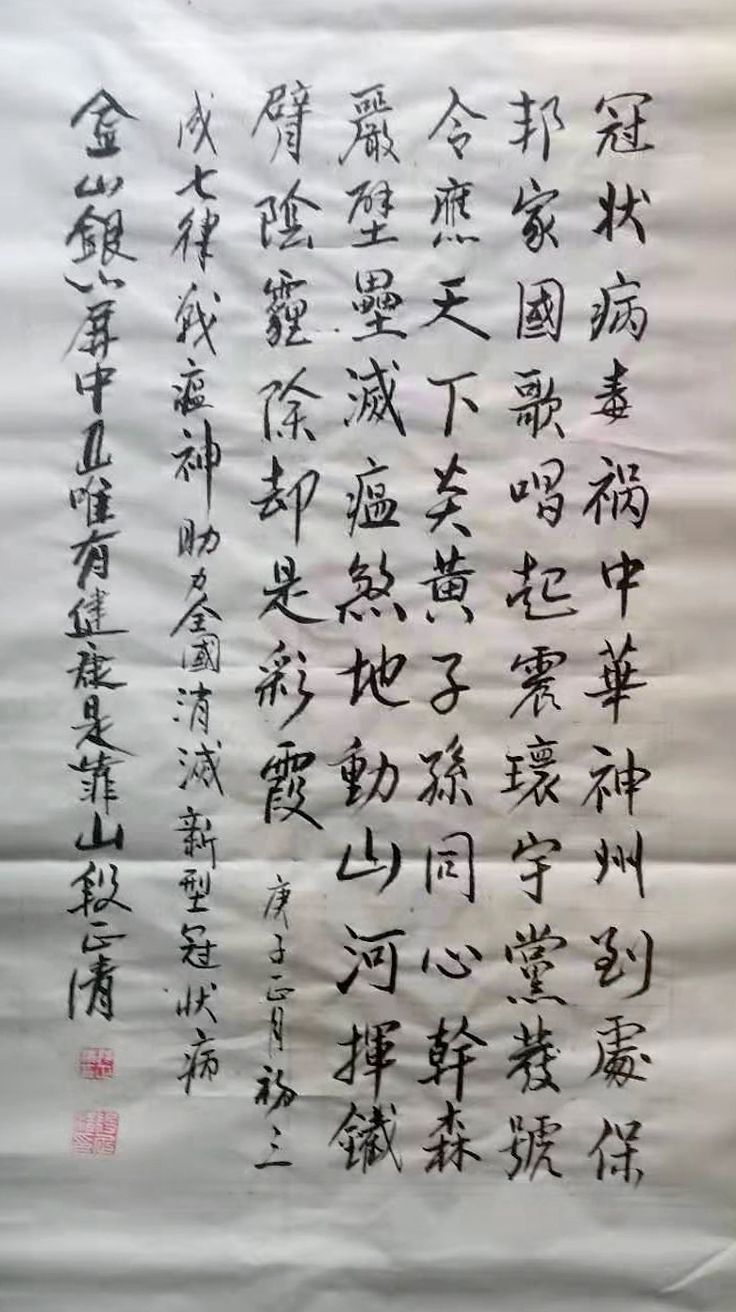 冠状病毒祸中華神州到處保
邦家國歌唱起震環宇黨發號
令應天下炎黄子孫同心幹森
嚴壁壘滅瘟煞地動山河揮鐵
臂陰霾除却是彩霞 庚子正月初三
成七律戰瘟神助力全國消滅新型冠状病
金山銀山屏中丑唯有健康是靠山段正清